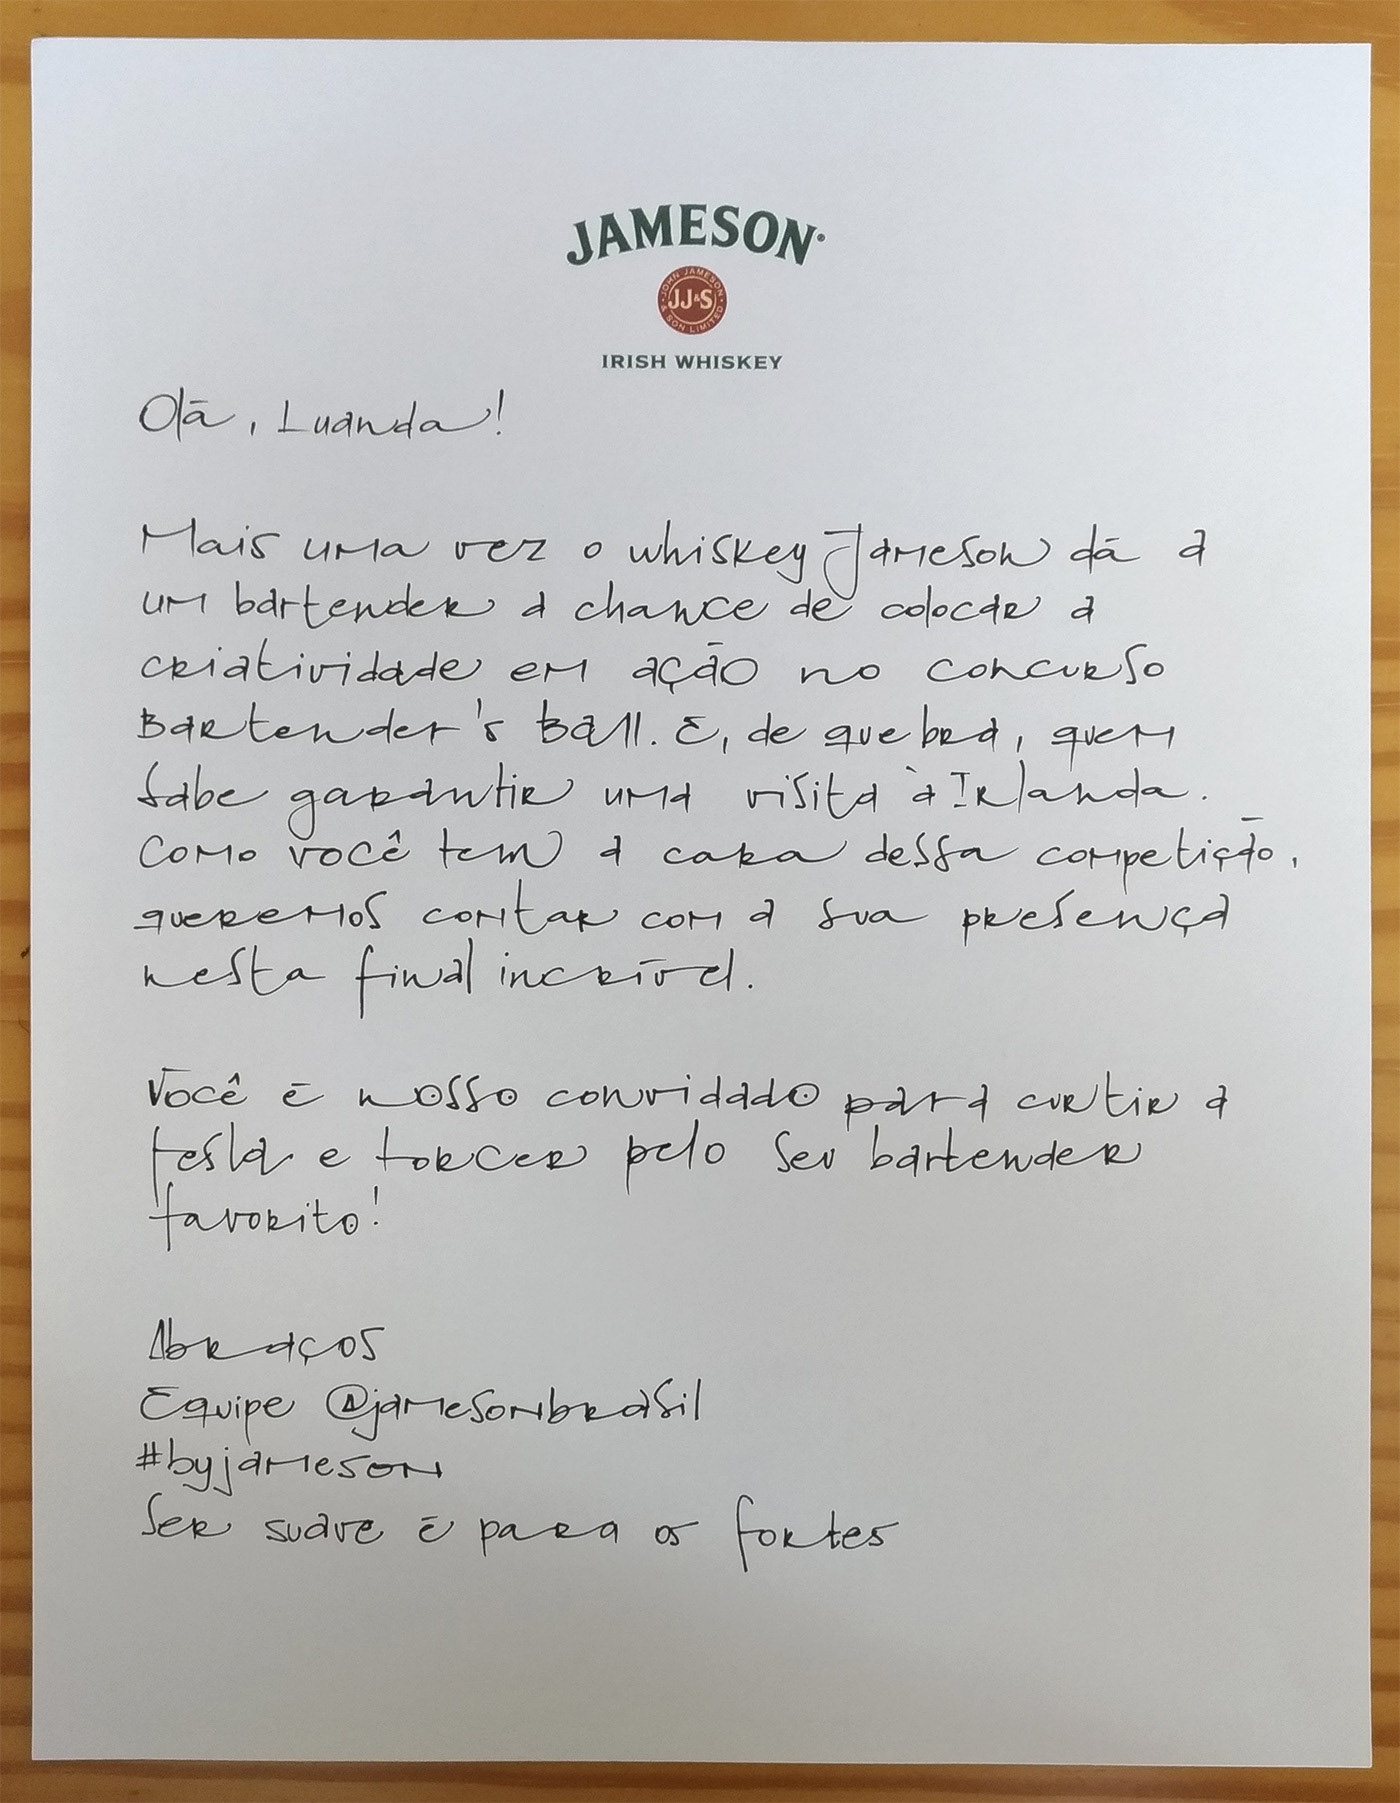 JAMESON®
JOHN JAMESON
JJ&S
& SON LIMITED
IRISH WHISKEY
Olá, Luanda!
Mais uma vez o whiskey Jameson dá a
um bartender a chance de colocar a
criatividade em ação no concurso
Bartender's Ball. E, de quebra, quem
sabe garantir uma visita à Irlanda.
Como você tem a cara dessa competição,
queremos contar com a sua presença
nesta final incrível.
Você é nosso convidado para curtir a
festa e torcer pelo seu bartender
favorito!
Abraços
Equipe @jamesonbrasil
#byjameson
Ser suave é para os fortes